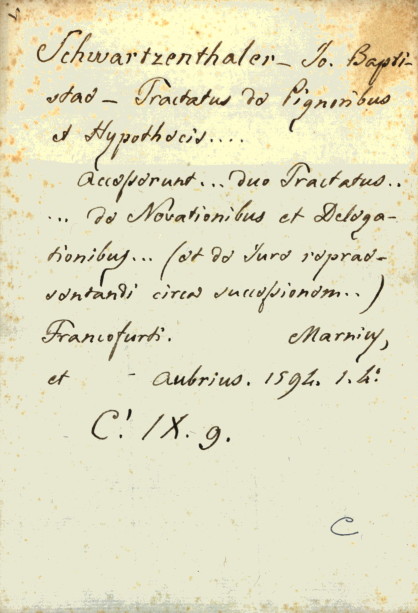 Schwartzenthaler - Jo. Bapti-
stae - Tractatus de Pignoribus
et Hypothecis....
Accesserunt... duo Tractatus..
... de Novationibus et Delega-
tionibus... (et de Jure reprae-
sentandi circa successionem..)
Francofurti. Marnius,
et - Aubrius. 1594. 1. 4º
C! IX. 9.
C